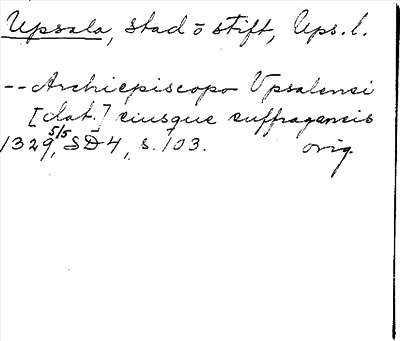 Upsala, stad o stift, Ups. l.
-- Archiepiscopo Vpsalensi
[dat.] eiusque suffraganeis
1329 5/5, SD 4, s. 103. orig.